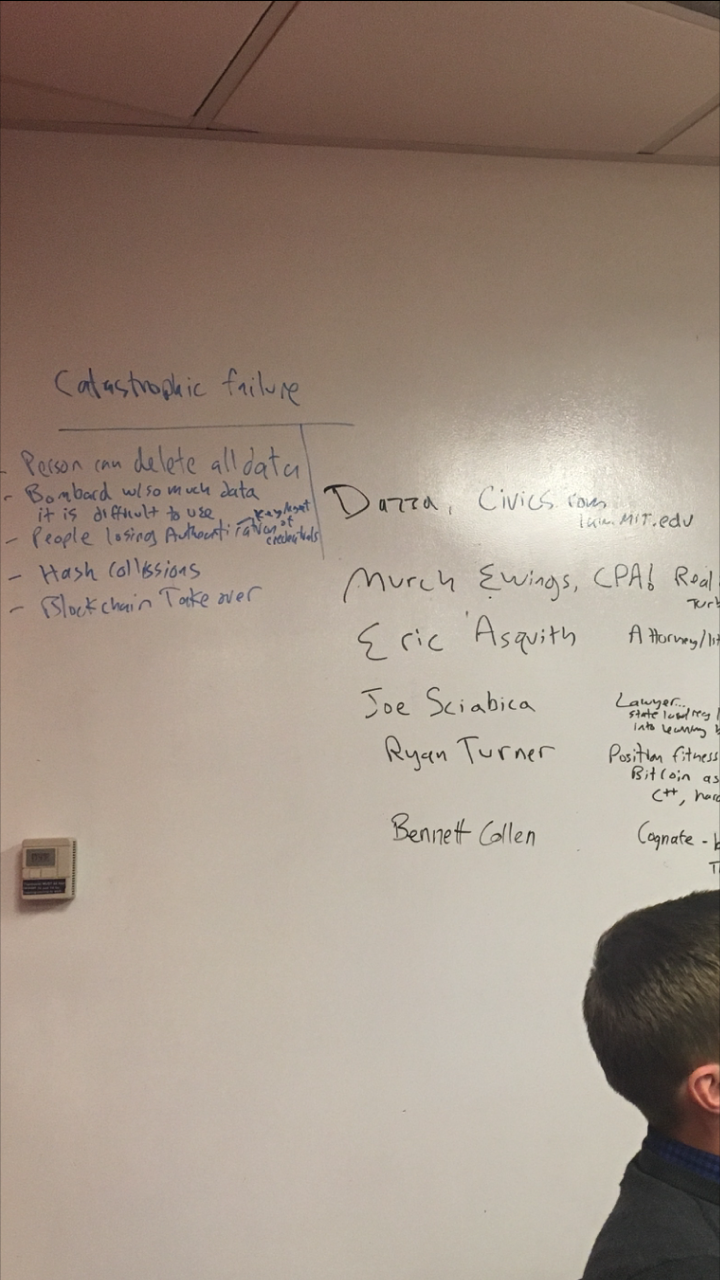 Catastrophic failure
- Person can delete all data
- Bombard w/so much data
it is difficult to use
- People losing Authentication
credentials
- Hash Collissions
- Blockchain Take over
Dazza, Civics.com
law.MIT.edu
Murch Ewings, CPA! Real
Eric Asquith Attorney/lit
Joe Sciabica Lawyer...
state
into learning b
Ryan Turner Position fitness
Bitcoin as
C++, hard
Bennett Collen Cognate - b